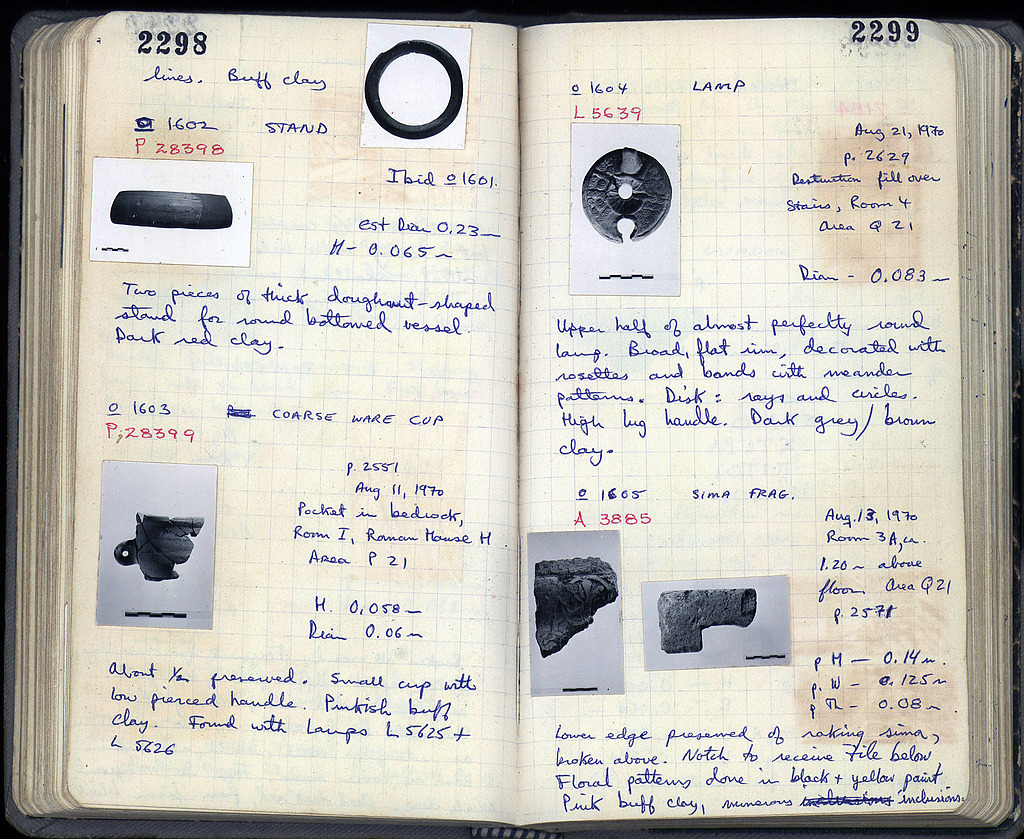 2298
lines. Buff clay
o 1602 STAND
P 28398
Ibid o 1601.
est Diam 0.23 m
H - 0.065 m
Two pieces of thick doughnut-shaped
stand for round bottomed vessel.
Dark red clay.
o 1603 COARSE WARE CUP
P 28399
p. 2551
Aug 11, 1970
Pocket in bedrock,
Room I, Roman House H
Area P 21
H. 0,058 m
Diam 0.06 m
About 1/2 preserved. Small cup with
low pierced handle. Pinkish buff
clay. Found with Lamps L 5625 +
L 5626
2299
o 1604 LAMP
L 5639
Aug 21, 1970
p. 2629
Destruction fill over
Stairs, Room 4
Area Q 21
Diam - 0.083 m
Upper half of almost perfectly round
lamp. Broad, flat rim, decorated with
rosettes and bands with meander
patterns. Disk: rays and circles.
High lug handle. Dark grey/brown
clay.
o 1605 SIMA FRAG.
A 3885
Aug. 13, 1970
Room 3A, ca.
1.20 m above
floor Area Q 21
p. 2571
p H - 0.14 m.
p. W - 0.125 m
p Th - 0.08 m
Lower edge preserved of raking sima,
broken above. Notch to receive tile below
Floral patterns done in black + yellow paint
Pink buff clay, numerous inclusions.